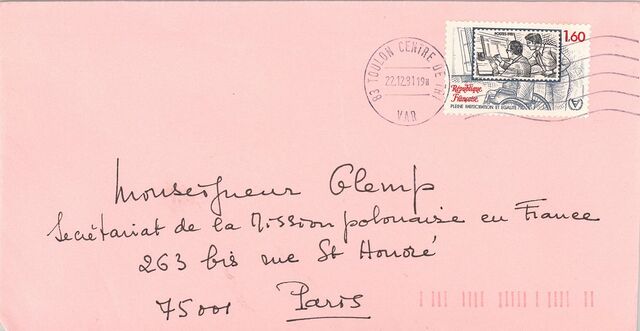 POSTES 1981
1.60
République
Française
PLEINE PARTICIPATION ET EGALITE
83 TOULON CENTRE DE TRI
22.12.81 19H
VAR
Monseigneur Glemp
Secrétariat de la Mission polonaise en France
263 bis rue St Honoré
75001 Paris